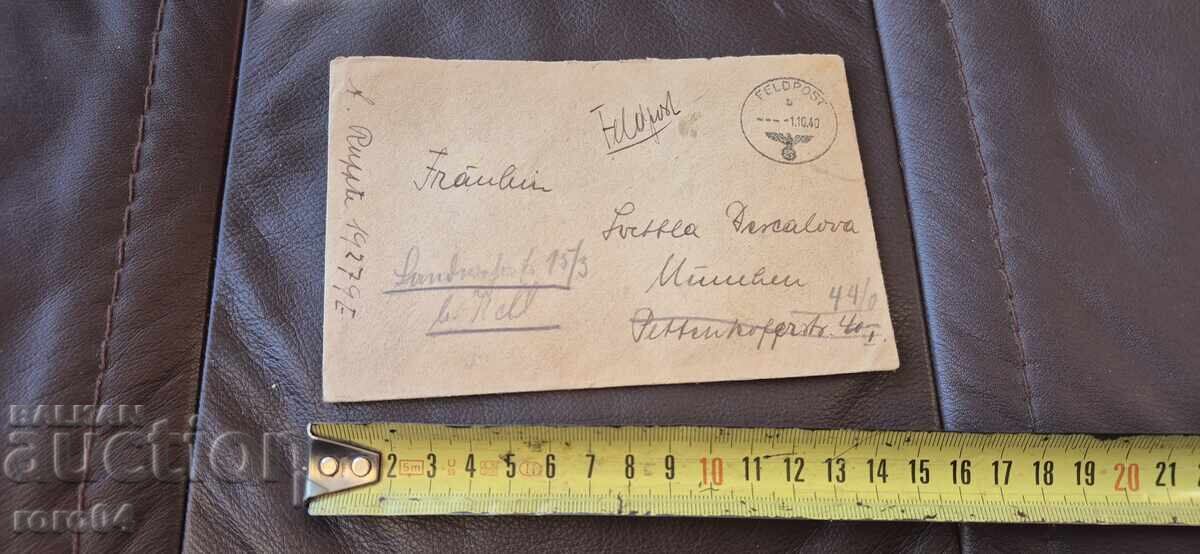 Feldpost
FELDPOST
b
---- -1.10.40
Fräulein
Svettla Descalova
München
44/0
Pettenkoferstr.
15/3
19279E
BALKAN
auction
roro84
2 5m 3 4 5 6 7 8 9 10 11 12 13 14 15 16 17 18 19 20 21